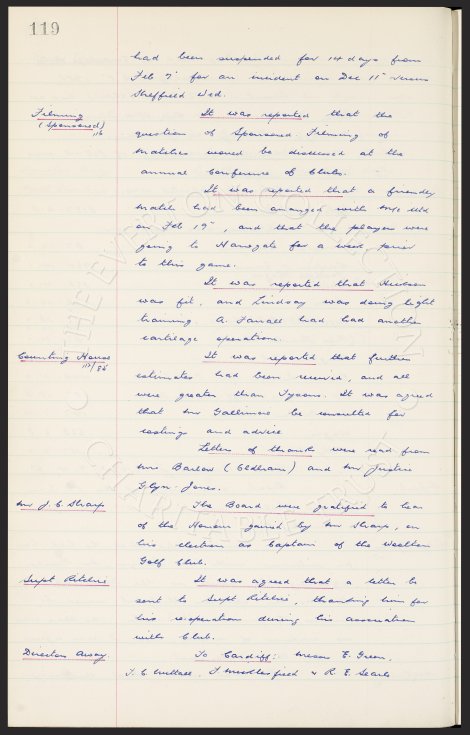 119
had been suspended for 14 days from
Feb 7th for an incident on Dec 11th versus
Sheffield Wed.
Filming
(Sponsored)
It was reported that the
question of Sponsored Filming of
matches would be discussed at the
annual Conference of Clubs.
It was reported that a friendly
match had been arranged with M/c Utd
on Feb 19th, and that the players were
going to Harrogate for a week prior
to this game.
It was reported that Hudson
was fit, and Lindsay was doing light
training A. Farrall had had another
cartilage operation.
Counting House
It was reported that further
estimates had been received, and all
were greater than Tysons. It was agreed
that Mr Gallimore be consulted for
costings and advice
Letters of thanks were read from
Mrs Barlow (Oldham) and Mr Justice
Glyn-Jones.
Mr J. C. Sharp
The Board were gratified to hear
of the Honour gained by Mr Sharp, on
his election as Captain of the Woolton
Golf Club.
Supt Ritchie
It was agreed that a letter be
sent to Supt Ritchie, thanking him for
his co-operation during his association
with Club.
Directors Away.
To Cardiff: Messrs E. Green,
T. C. Nuttall, F. Micklesfield & R. E. Searle
THE EVERTON COLLECTION
CHARITABLE TRUST